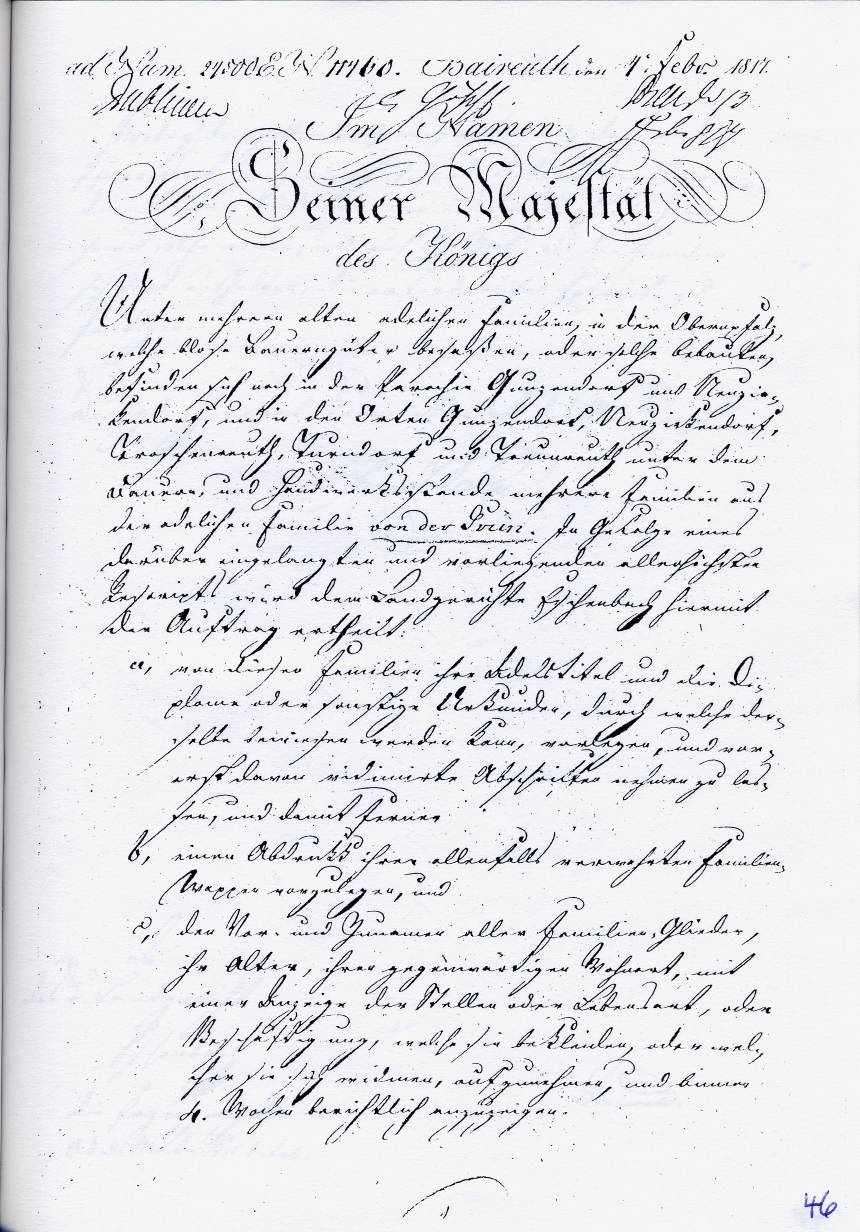 ad Num. 24500 E. N. 11760. Baireuth den 4t Febr. 1817.
Im Namen
Seiner Majestät
des Königs
Unter mehrern alten adelichen Familien, in der Obernpfalz,
welche blose Bauerngüter besaßen, oder selbe bebauten,
befinden sich noch in der Parochie Gunzendorf und Neuzir-
kendorf, und in den Orten Gunzendorf, Neuzirkendorf,
Troschenreuth, Turndorf und unter dem
Bauern, und Handwerksstande mehrere Familien aus
der adelichen Familie von der Grün. In Gefolge eines
darüber eingelangten und vorliegenden allerhöchsten
Rescripts wird dem Landgerichte Eschenbach hiermit
der Auftrag ertheilt:
a, von diesen Familien ihre Adelstitel und die Di-
plome oder sonstige Urkunden, durch welche der-
selbe bewiesen werden kann, vorlegen, und vor-
erst davon vidimirte Abschriften nehmen zu las-
sen, und damit ferner
b, einen Abdruck ihres allenfalls verwahrten Familien-
Wappen vorzulegen, und
c, den Vor- und Zunamen aller Familien-Glieder,
ihr Alter, ihren gegenwärtigen Wohnort, mit
einer Anzeige der Stellen oder Lebensart, oder
Beschäftigung, welche sie bekleiden, oder wel-
cher sie sich widmen, aufzunehmen, und binnen
4. Wochen berichtlich anzuzeigen.
46